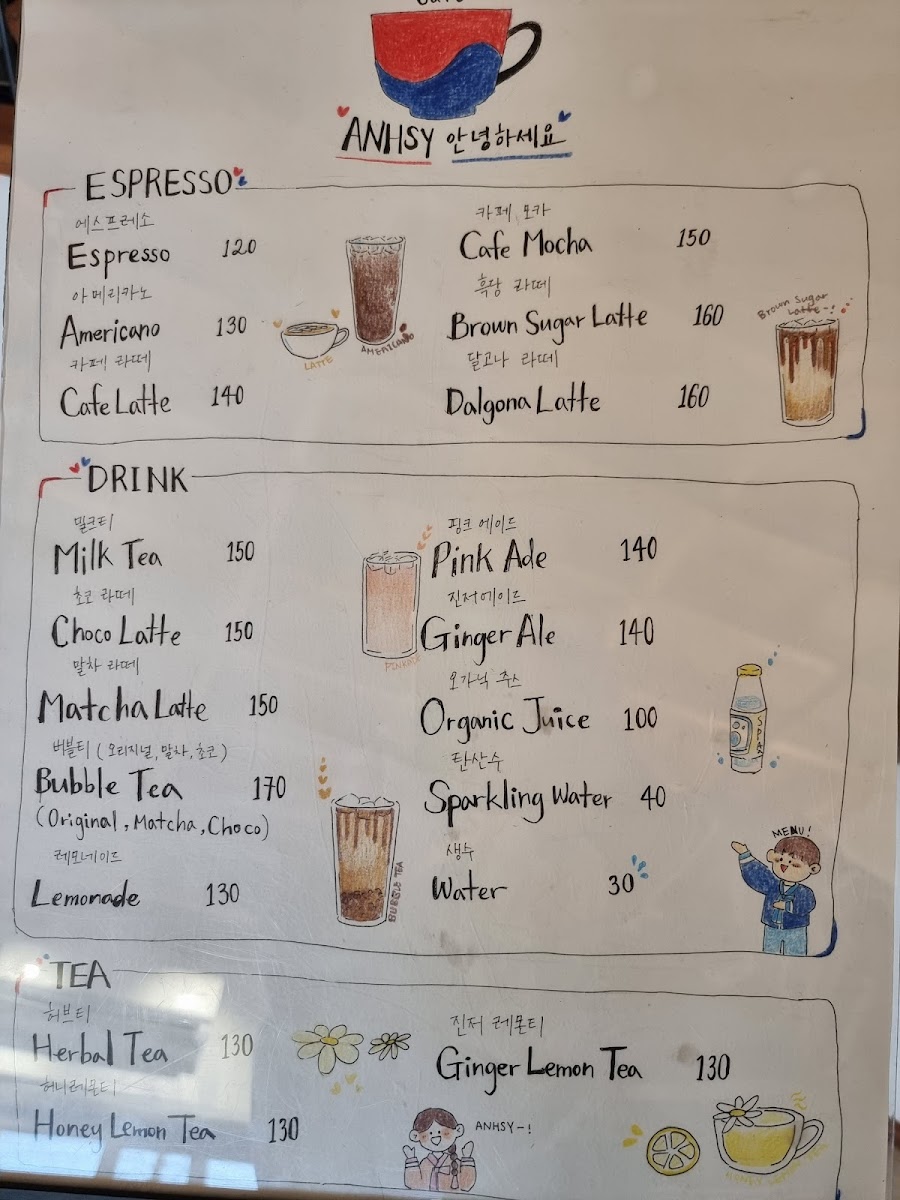 Cafe
ANHSY 안녕하세요
ESPRESSO
에스프레소
Espresso 120
아메리카노
Americano 130
카페 라떼
Cafe Latte 140
LATTE
AMERICANO
카페 모카
Cafe Mocha 150
흑당 라떼
Brown Sugar Latte 160
달고나 라떼
Dalgona Latte 160
Brown Sugar
Latte~!
DRINK
밀크티
Milk Tea 150
초코 라떼
Choco Latte 150
말차 라떼
Matcha Latte 150
버블티 (오리지널, 말차, 초코)
Bubble Tea 170
(Original, Matcha, Choco)
레모네이드
Lemonade 130
BUBBLE TEA
핑크 에이드
Pink Ade 140
진저에이드
Ginger Ale 140
오가닉 주스
Organic Juice 100
탄산수
Sparkling Water 40
생수
Water 30
MENU!
TEA
허브티
Herbal Tea 130
허니레몬티
Honey Lemon Tea 130
진저 레몬티
Ginger Lemon Tea 130
ANHSY~!
HONEY LEMON TEA